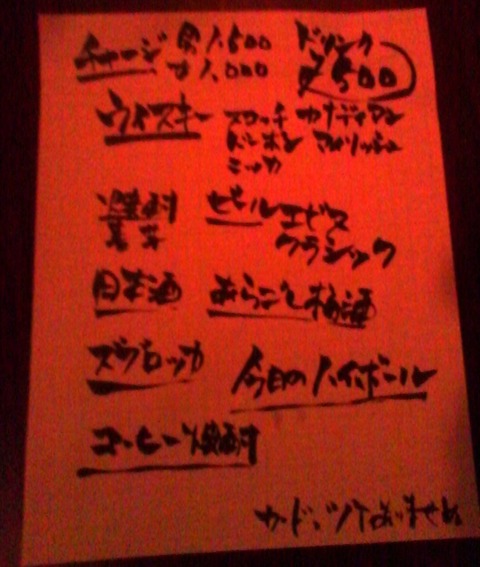 チャージ 男1,500
女1,000
ドリンク
〆500
ウイスキー スコッチ カナディアン
バーボン アイリッシュ
ニッカ
焼酎 麦 芋
ビール エビス
クラシック
日本酒 あらごし梅酒
ズブロッカ 今日のハイボール
コーヒー焼酎